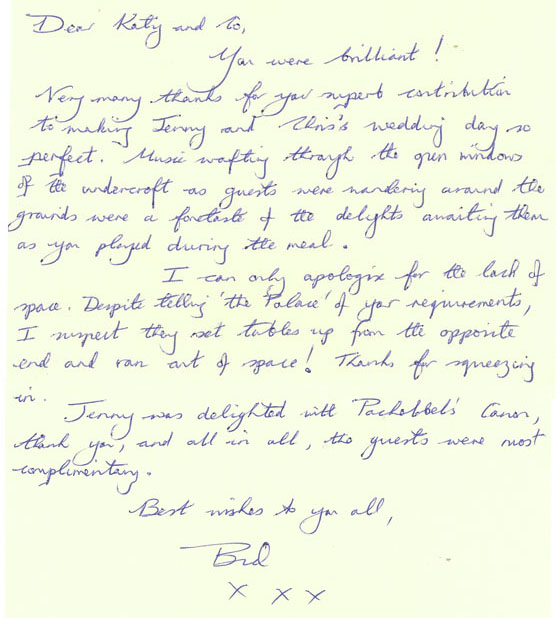 Dear Katy and Co,
You were brilliant!
Very many thanks for your superb contribution
to making Jenny and Chris's wedding day so
perfect. Music wafting through the open windows
of the undercroft as guests were wandering around the
grounds were a foretaste of the delights awaiting them
as you played during the meal.
I can only apologise for the lack of
space. Despite telling 'the Palace' of your requirements,
I suspect they set tables up from the opposite
end and ran out of space! Thanks for squeezing
in.
Jenny was delighted with 'Pachobbel's Canon,
thank you, and all in all, the guests were most
complimentary.
Best wishes to you all,
x x x